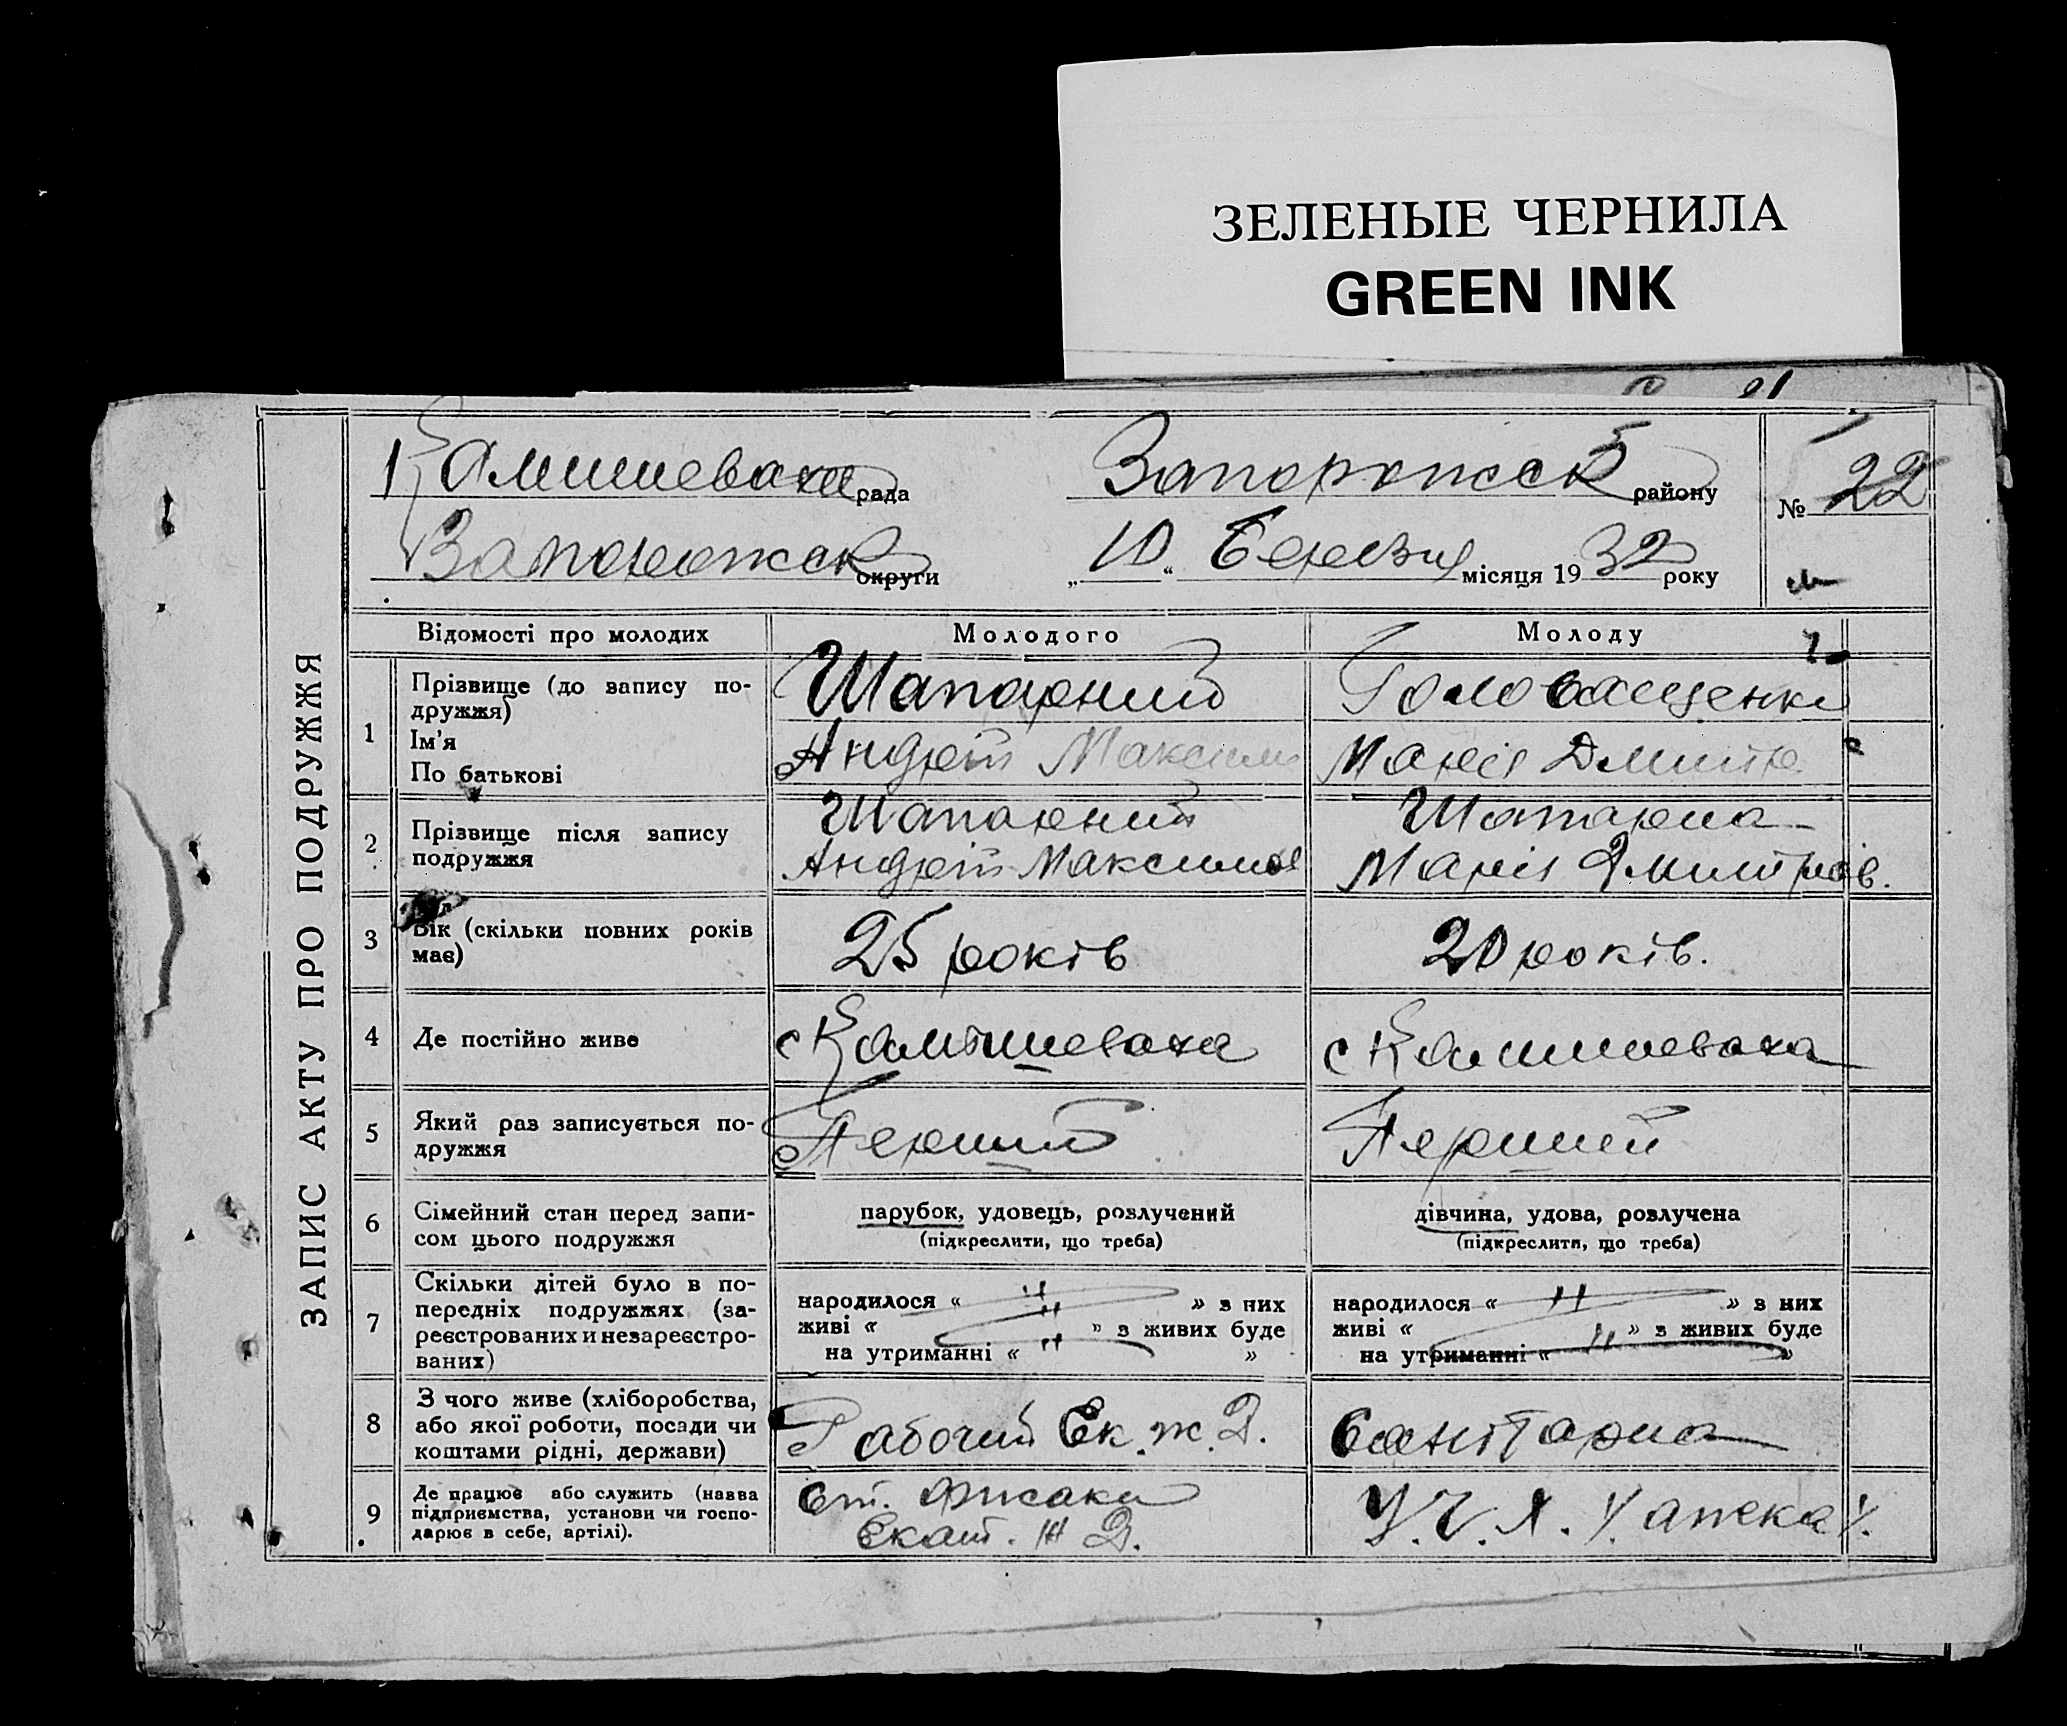 ЗЕЛЕНЫЕ ЧЕРНИЛА
GREEN INK
ЗАПИС АКТУ ПРО ПОДРУЖЖЯ
Камишеваха рада Запорожськ району № 22
Запорожськ округи „10“ Березня місяця 1932 року
Відомості про молодих Молодого Молоду
1 Прізвище (до запису по-
дружжя)
Ім'я
По батькові
Шапарний
Андрей Максим
Головащенко
Марія Дмитр
2 Прізвище після запису
подружжя
Шапарний
Андрей Максимов
Шапарна
Марія Дмитрів.
3 Вік (скільки повних років
має)
25 років
20 років.
4 Де постійно живе
с Камышеваха
с Камишеваха
5 Який раз записується по-
дружжя
Перший
Перший
6 Сімейний стан перед запи-
сом цього подружжя
парубок, удовець, розлучений
(підкреслити, що треба)
дівчина, удова, розлучена
(підкреслити, що треба)
7 Скільки дітей було в по-
передніх подружжях (за-
реєстрованих и незареєстро-
ваних)
народилося « " » з них
живі « " » з живих буде
на утриманні « " »
народилося « " » з них
живі « " » з живих буде
на утриманні « »
8 З чого живе (хліборобства,
або якої роботи, посади чи
коштами рідні, держави)
Рабочий Ек. ж. Д.
Санітарка
9 Де працює або служить (назва
підприємства, установи чи госпо-
дарює в себе, артілі).
Ст.
Екат. Ж Д.
аптека